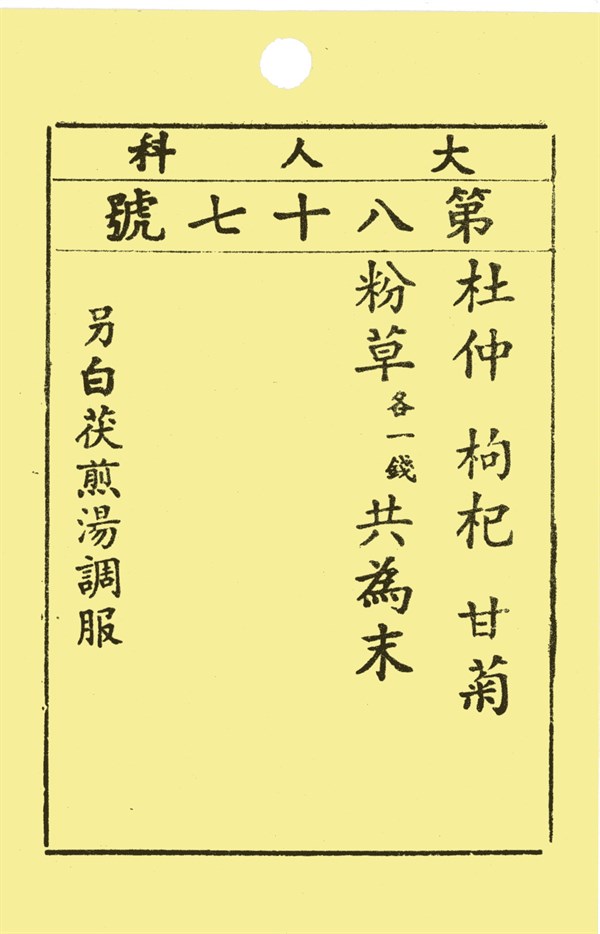 大人科
第八十七號
杜仲 枸杞 甘菊
粉草各一錢共為末
另白茯煎湯調服